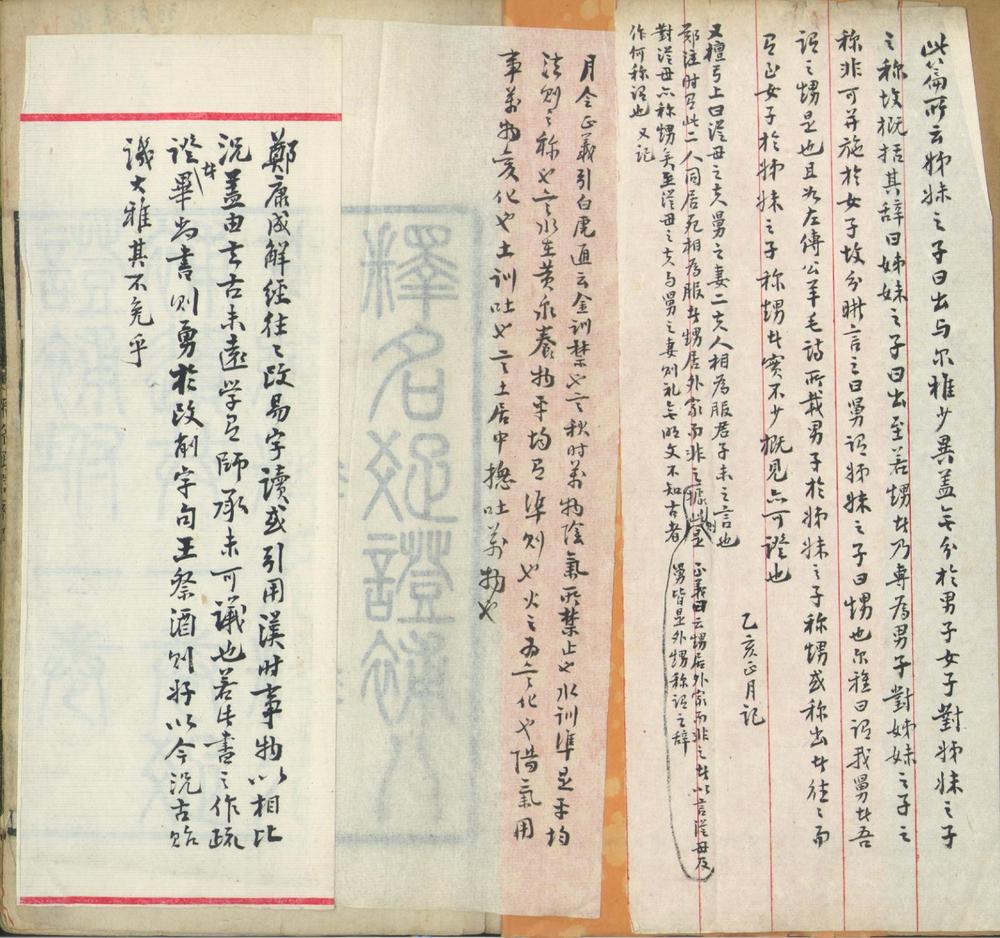 此篇所云姊妹之子曰出与尔雅少異蓋無分於男子女子對姊妹之子
之称故概括其辞曰姊妹之子曰出至若甥者乃專為男子對姊妹之子之
称非可并施於女子故分晰言之曰舅謂姊妹之子曰甥也尔雅曰謂我舅者吾
謂之甥是也且如左傳公羊毛詩所載男子於姊妹之子称甥或称出者往々而
有正女子於姊妹之子称甥者實不少概見亦可證也
乙亥正月記
又檀弓上曰從母之夫舅之妻二夫人相為服君子未之言也
鄭注时有此二人同居死相為服者甥居外家而非之據此是
正義曰云甥居外家而非之者以言從母及
舅皆是外甥称謂之辞
對從母亦称甥矣至從母之夫与舅之妻則礼無明文不知古者
作何称謂也 又記
月令正義引白虎通云金訓禁也言秋时萬物陰氣所禁止也水訓準是平均
法則之称也言水在黄泉養物平均有準則也火之為言化也陽氣用
事萬物变化也土訓吐也言土居中總吐萬物也
釋名疏證補八
鄭康成解經往々改易字讀或引用漢时事物以相比
況蓋由去古未遠学有師承未可議也若此書之作疏
證者畢尚書则勇於改削字句王祭酒则好以今況古貽
譏大雅其不免乎